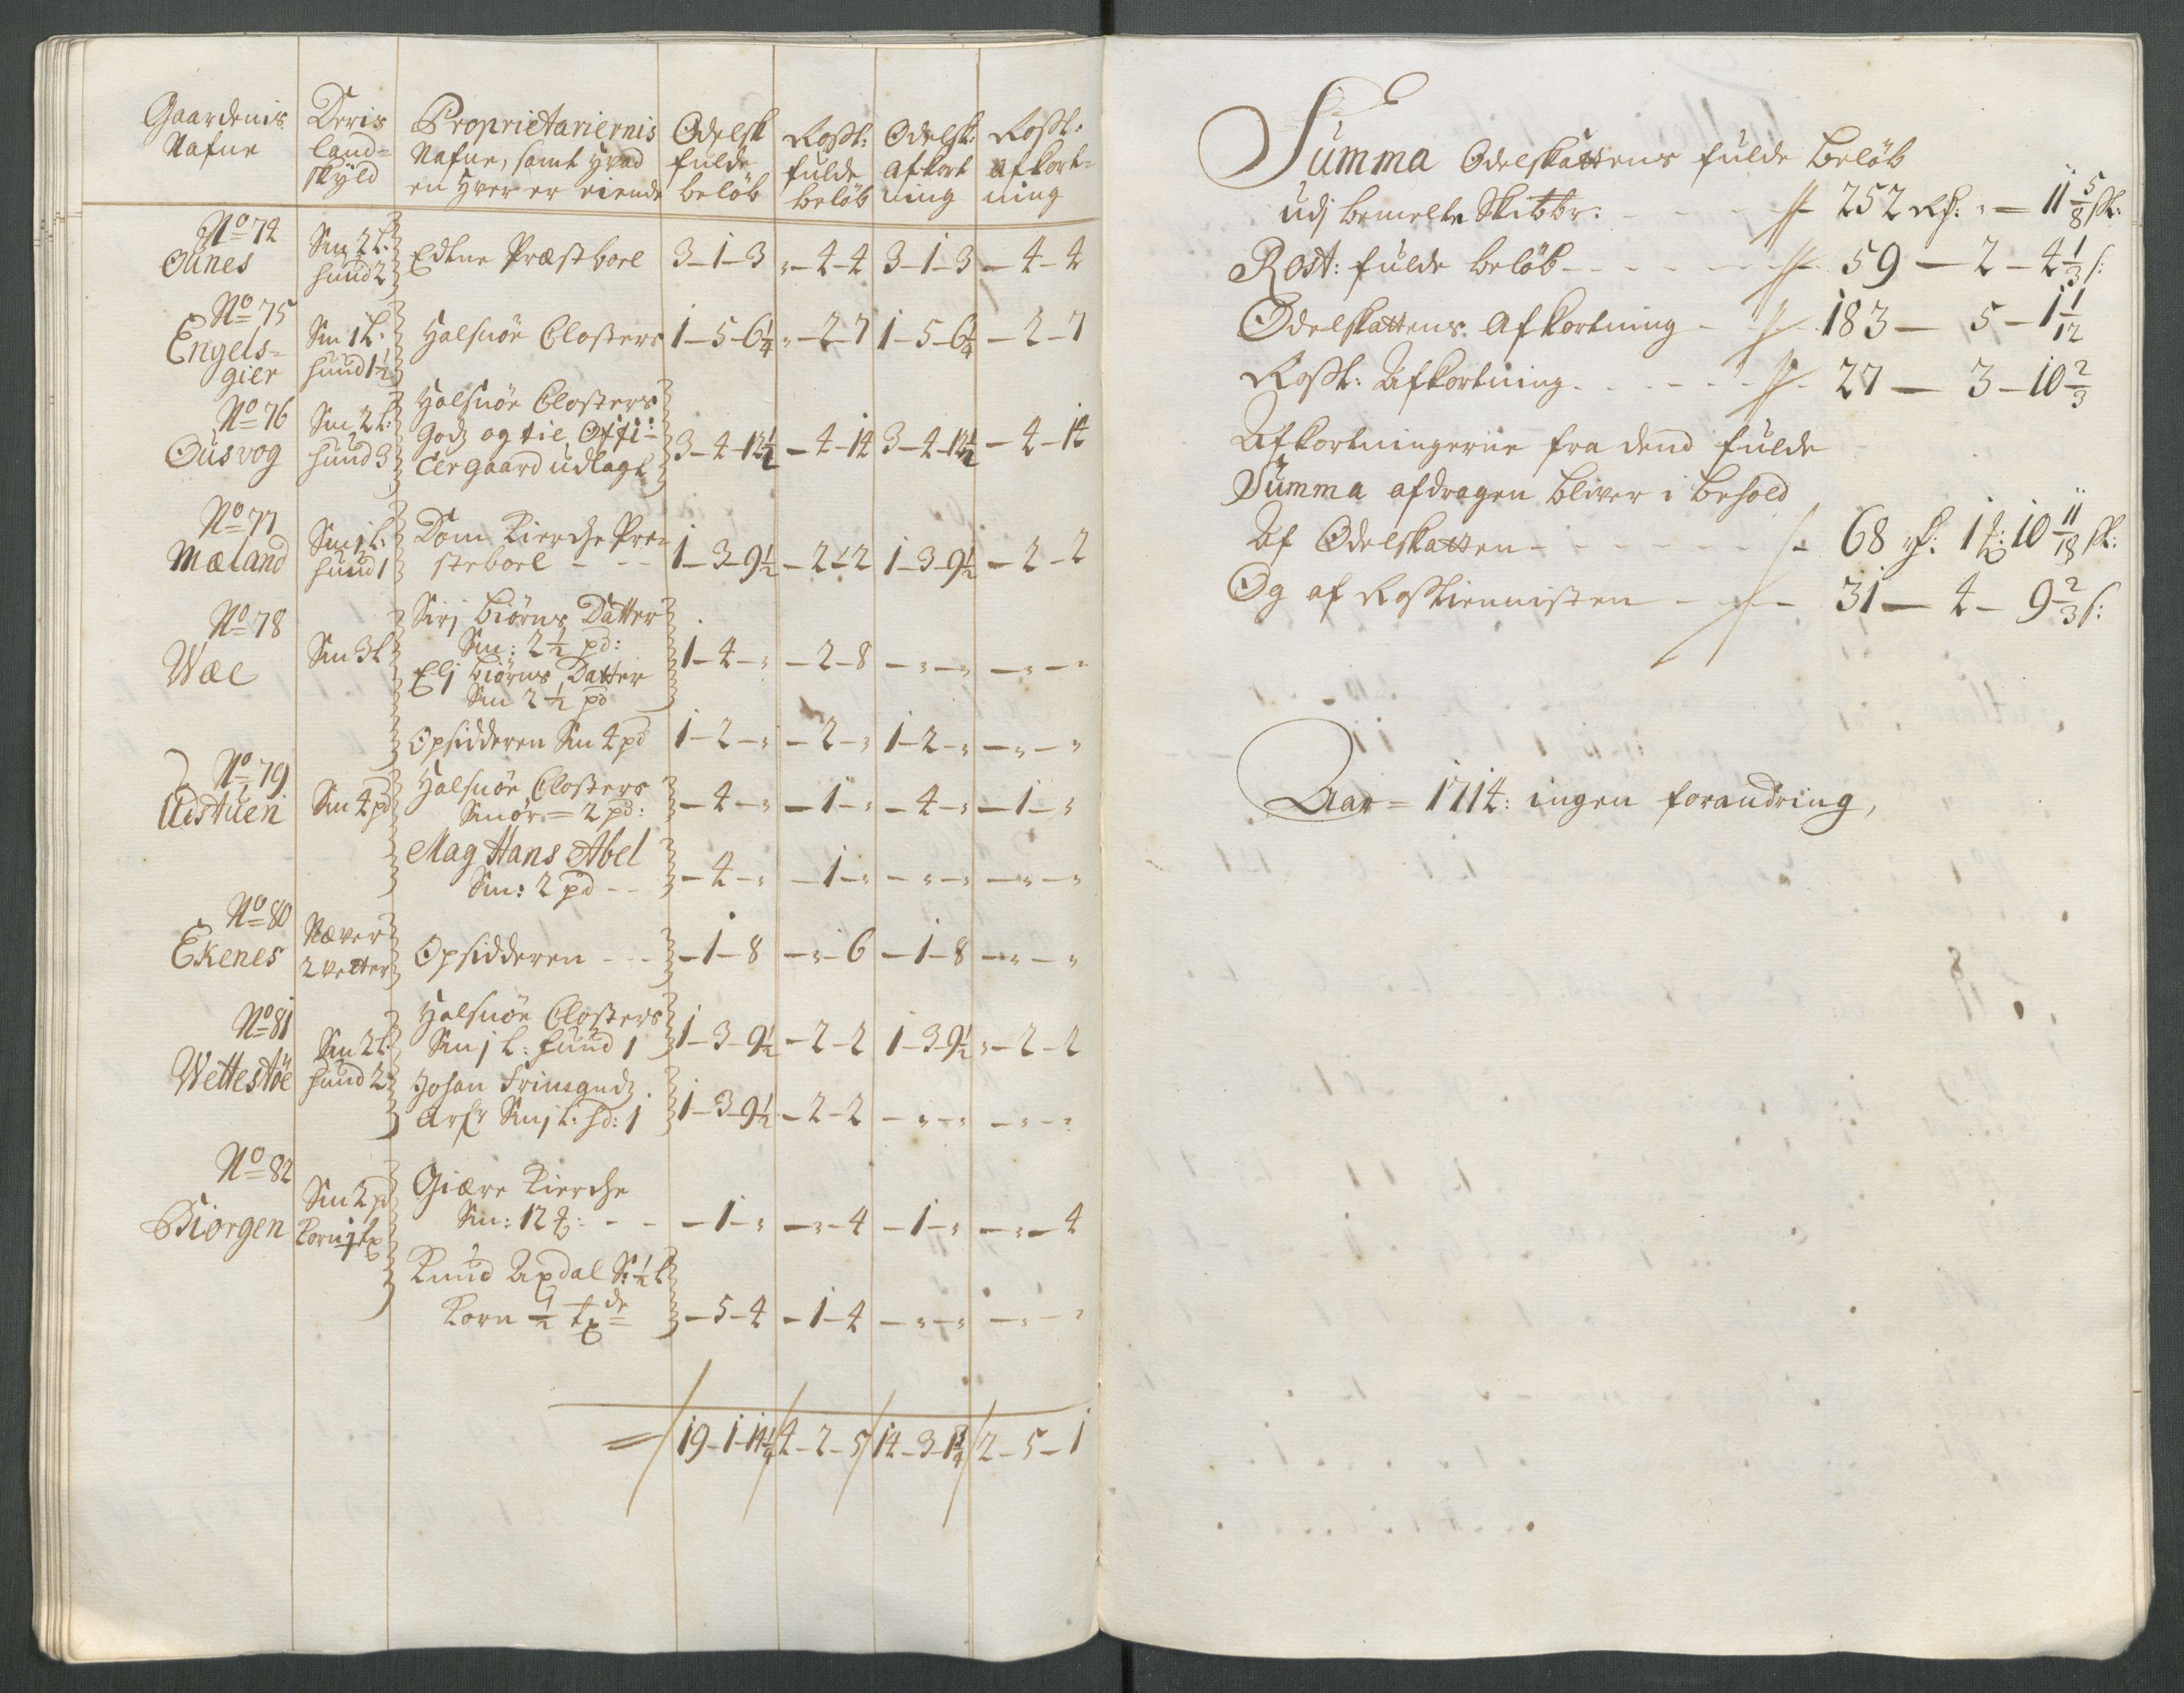 Gaardenis Nafne | Deris land= skyld | Proprietariernis Nafne, samt hvad en hver er eiende | Odelsk fulde beløb | Rosst: fulde beløb | Odelsk: afkort ning | Rosst: afkort= ning
No 74
Ounes | Sm 2 L: hund 2 | Edtne Præstboel | 3-1-3 | "-4-4 | 3-1-3 | -4-4
No 75
Engels= gier | Sm 1 L: hund 1½ | Halsnöe Closters | 1-5-6¼ | "-2-7 | 1-5-6¼ | -2-7
No 76
Ousvog | Sm 2 L: hund 3 | Halsnöe Closters
Godz og til Offi=
cergaard udlagt | 3-4-12½ | -4-14 | 3-4-12½ | -4-14
No 77
Mæland | Sm 1 L: hund 1 | Dom Kierche Præ=
steboel - - - | 1-3-9½ | -2-2 | 1-3-9½ | -2-2
No 78
Wæe | Sm 3 L | Sirj Biörns Datter
Sm: 2½ pd:
Elj Biörns Datter
Sm 2½ pd | 1-4-" | -2-8 | -"-" | -"-"
Opsidderen Sm 4 pd | 1-2-" | -2-" | 1-2-" | -"-"
No 79
Udstuen | Sm 4 pd | Halsnöe Closters
Smör = 2 pd: | -4-" | -1-" | -4-" | -1-"
Mag Hans Abel
Sm: 2 pd - - | -4-" | -1-" | -"-" | -"-"
No 80
Ekenes | Næver 2 vetter | Opsidderen - - - | -1-8 | -"-6 | -1-8 | -"-"
No 81
Wettestöe | Sm 2 L: hund 2 | Halsnöe Closters
Sm 1 L: hund 1 | 1-3-9½ | -2-2 | 1-3-9½ | "-2-2
Johan
Sm 1 L: hd: 1 | 1-3-9½ | -2-2 | -"-" | -"-"
No 82
Biörgen | Sm 2 pd Korn 1 | Giære Kierche
Sm: 12 - - | -1-" | -"-4 | -1-" | -"-4
Knud Apdal S: ½ L
Korn ½ | -5-4 | -1-4 | -"-" | -"-"
= 19-1-14¼ | 4-2-5 | 14-3-1¾ | 2-5-1
Summa Odelskattens fulde Beløb
udj bemelte Skibbr: - - - 252 Rd: " - 11 5/8 sk:
Rost: fulde beløb - - - - - 59 - 2 - 4 1/3 s:
Odelskattens Afkortning - 183 - 5 - 1 1/12
Rosst: Afkortning - - - - - 27 - 3 - 10 2/3
Afkortningerne fra dend fulde
Summa afdragen bliver i behold
Af Odelskatten - - - - - - 68 rd: 1 10 11/18 sk:
Og af Rosstiennisten - - - 31 - 4 - 9 2/3 s:
Aar = 1714: ingen forandring,